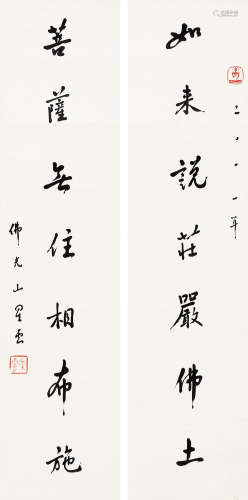 二〇〇一年
如来說莊嚴佛土
菩薩無住相布施
佛光山星雲